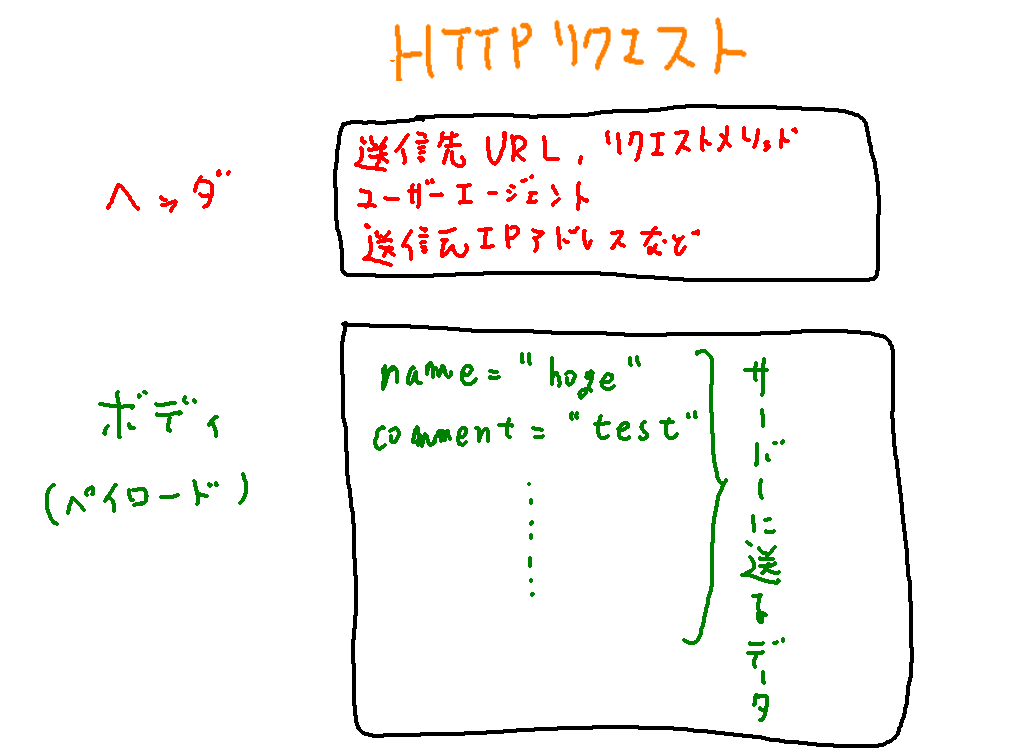 HTTPリクエスト
ヘッダ
送信先 URL, リクエストメソッド
ユーザーエージェント
送信元IPアドレスなど
ボディ
(ペイロード)
name="hoge"
comment="test"
サーバーに送るデータ